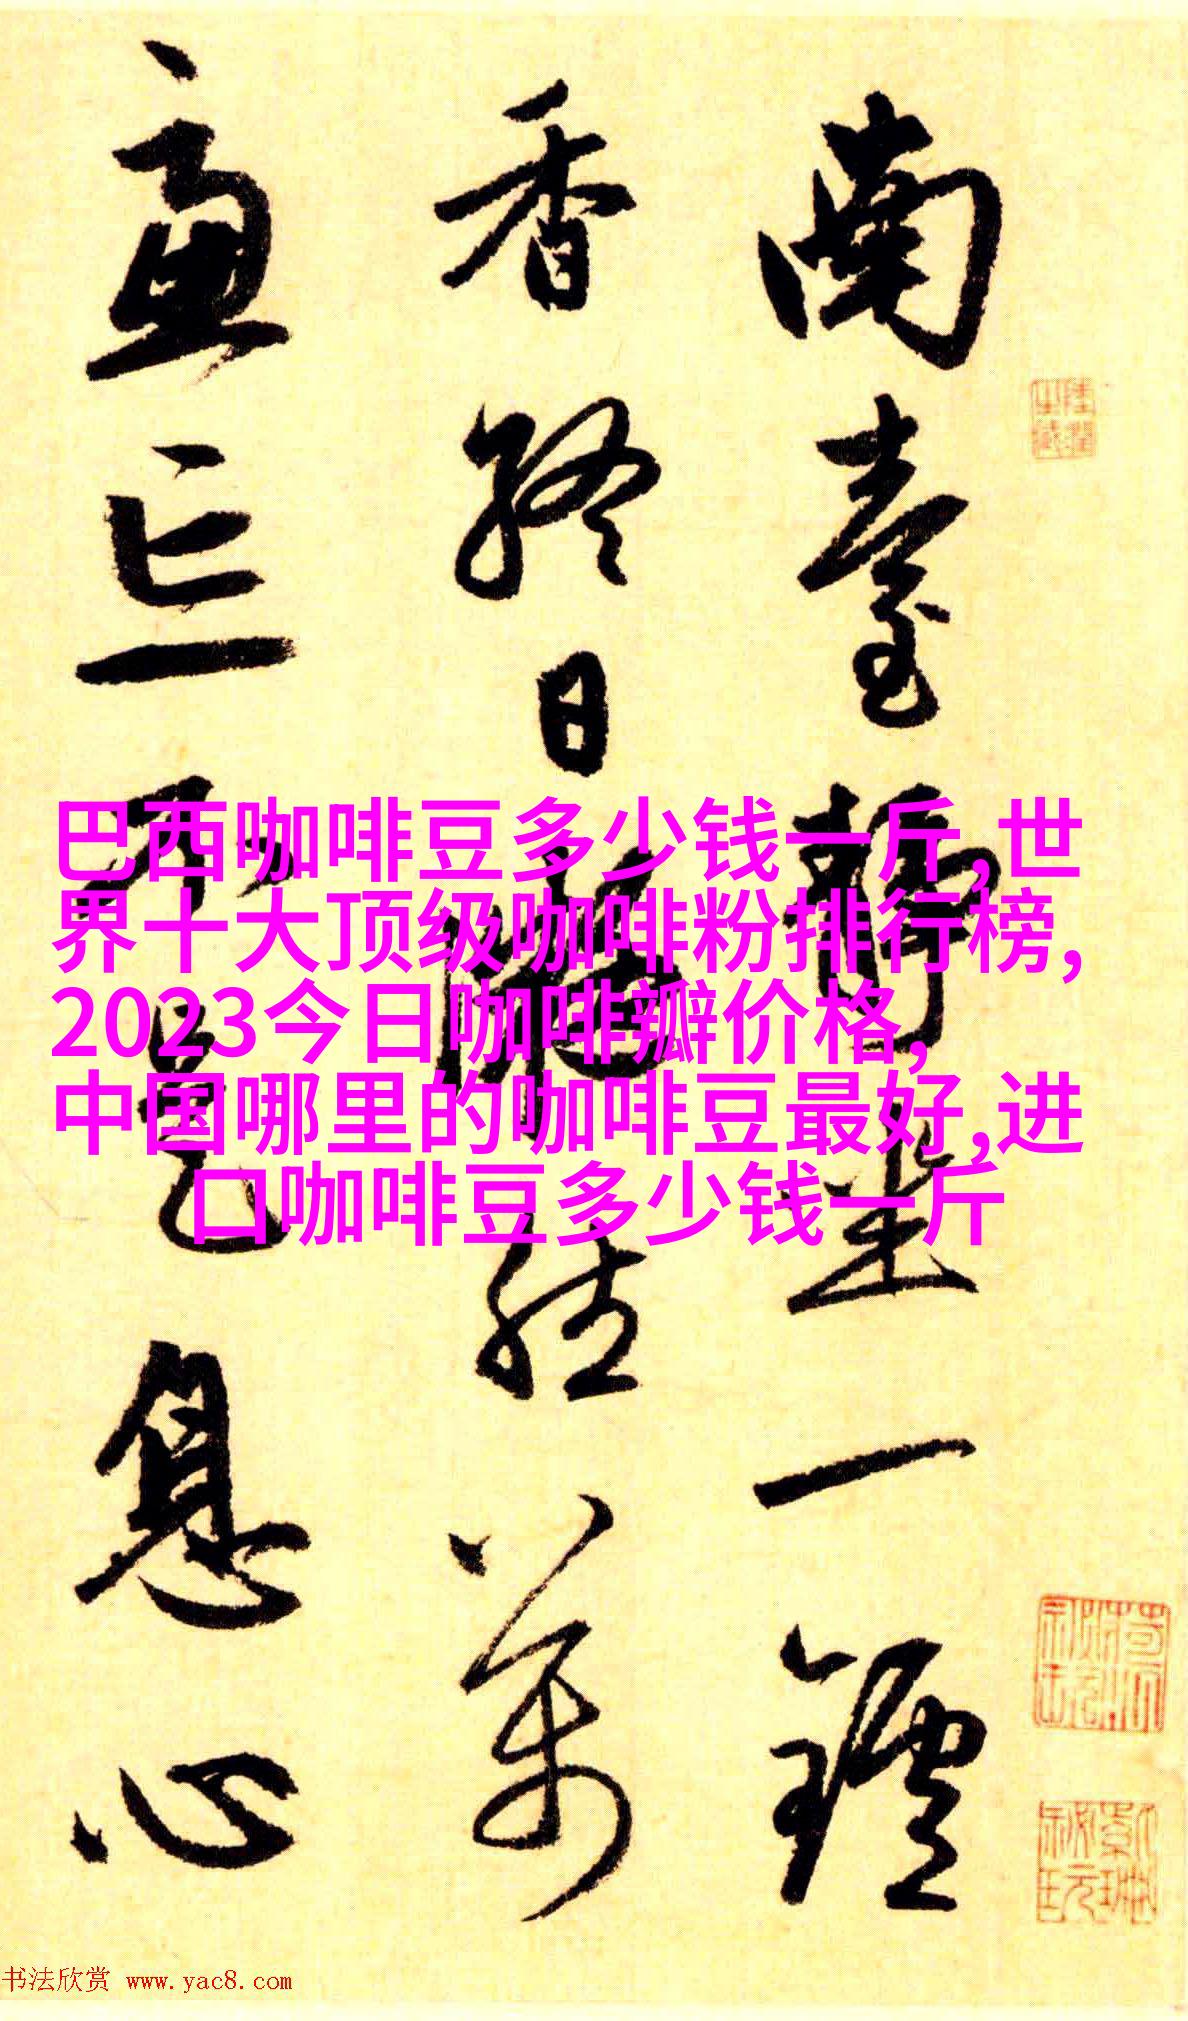 南臺靜坐一鑪
香終日凝然萬
慮亡不是息心
巴西咖啡豆多少钱一斤,世
界十大顶级咖啡粉排行榜,
2023今日咖啡瓣价格,
中国哪里的咖啡豆最好,进
口咖啡豆多少钱一斤
书法欣赏 www.yac8.com